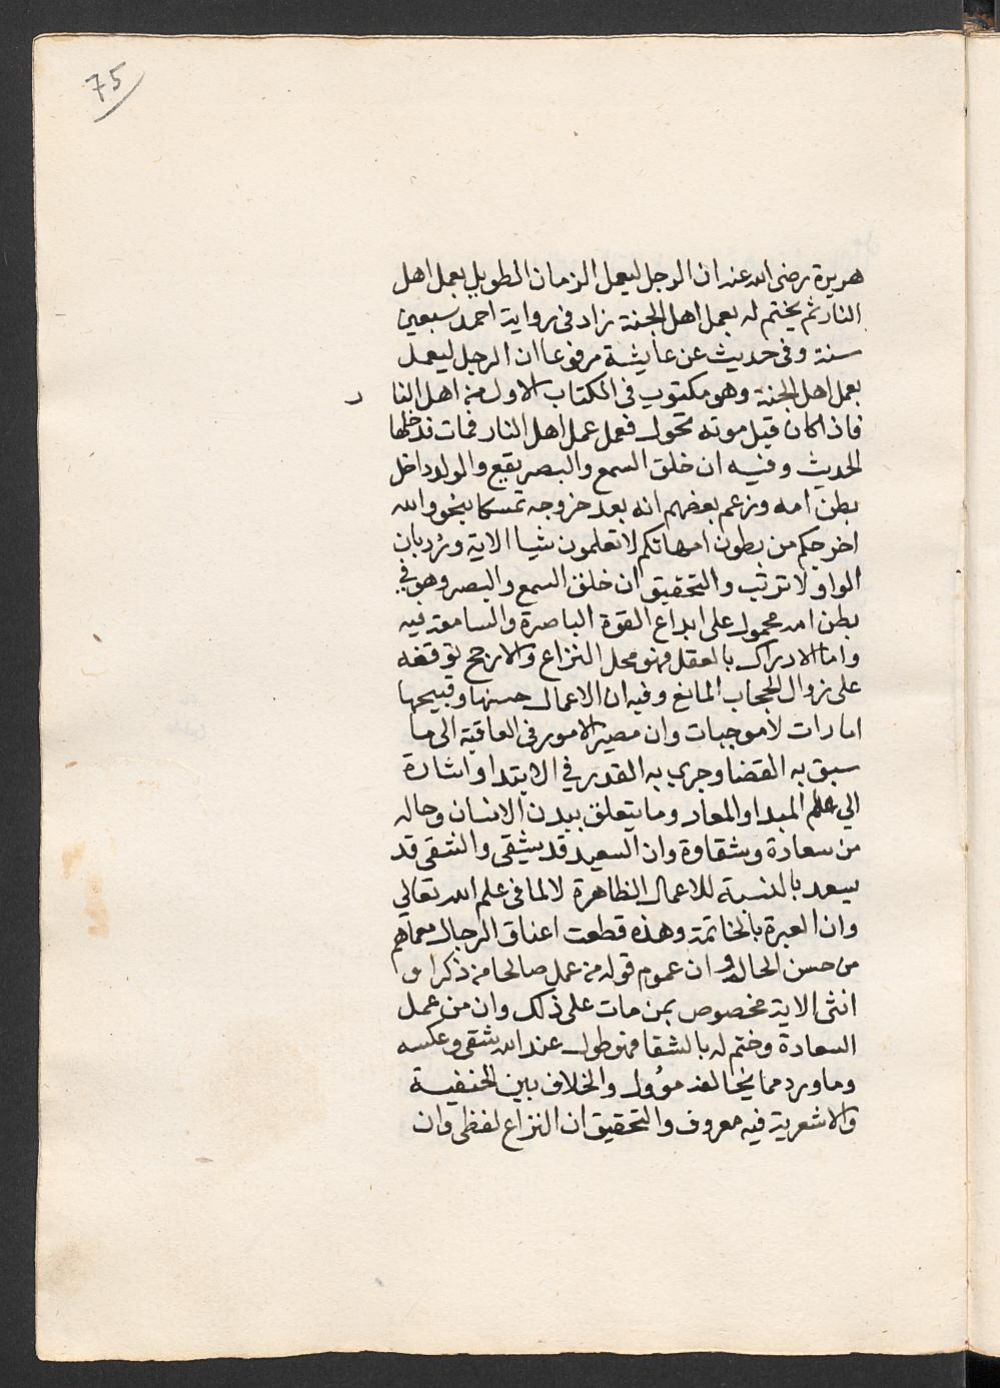 75
هريرة رضى الله عنه ان الرجل ليعمل الزمان الطويل بعمل اهل
النار ثم يختم له بعمل اهل الجنة زاد فى رواية احمد سبعين
سنة وفى حديث عن عايشة مرفوعا ان الرجل ليعمل
بعمل اهل الجنة وهو مكتوب فى الكتاب الاول من اهل النار
فاذا كان قبل موته تحول فعمل عمل اهل النار فمات فدخلها
الحديث وفيه ان خلق السمع والبصر يقع والولد داخل
بطن امه وزعم بعضهم انه بعد خروجه تمسكا بنحو والله
اخرجكم من بطون امهاتكم لا تعلمون شيا الاية ورُد بان
الواو لا ترتب والتحقيق ان خلق السمع والبصر وهو في
بطن امه محمول على ابداع القوة الباصرة والسامعة فيه
واما الادراك بالعقل فهو محل النزاع والارجح توقفه
على زوال الحجاب المانع وفيه ان الاعمال حسنها وقبيحها
امارات لا موجبات وان مصير الامور فى العاقبة الى ما
سبق به القضا وجرى به القدر في الابتدا واشارة
الي علم المبدا والمعاد وما يتعلق ببدن الانسان وحاله
من سعادة وشقاوة وان السعيد قد يشقى والشقى قد
يسعد بالنسبة للاعمال الظاهرة لا لما فى علم الله تعالي
وان العبرة بالخاتمة وهذه قطعت اعناق الرجال معماهم
من حسن الحال وان عموم قوله من عمل صالحا من ذكر او
انثى الاية مخصوص بمن مات على ذلك وان من عمل
السعادة وختم له بالشقا فهو طول عند الله شقى وعكسه
وما ورد مما يخالفه موُول والخلاف بين الحنفية
والاشعرية فيه معروف والتحقيق ان النزاع لفظى وان